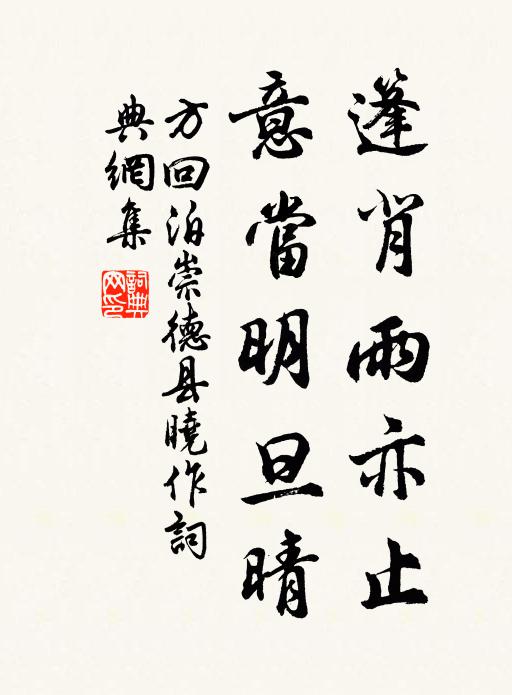 篷背雨亦止
意當明旦晴
方回泊崇德县曉作詞
典網集
詞典
网印